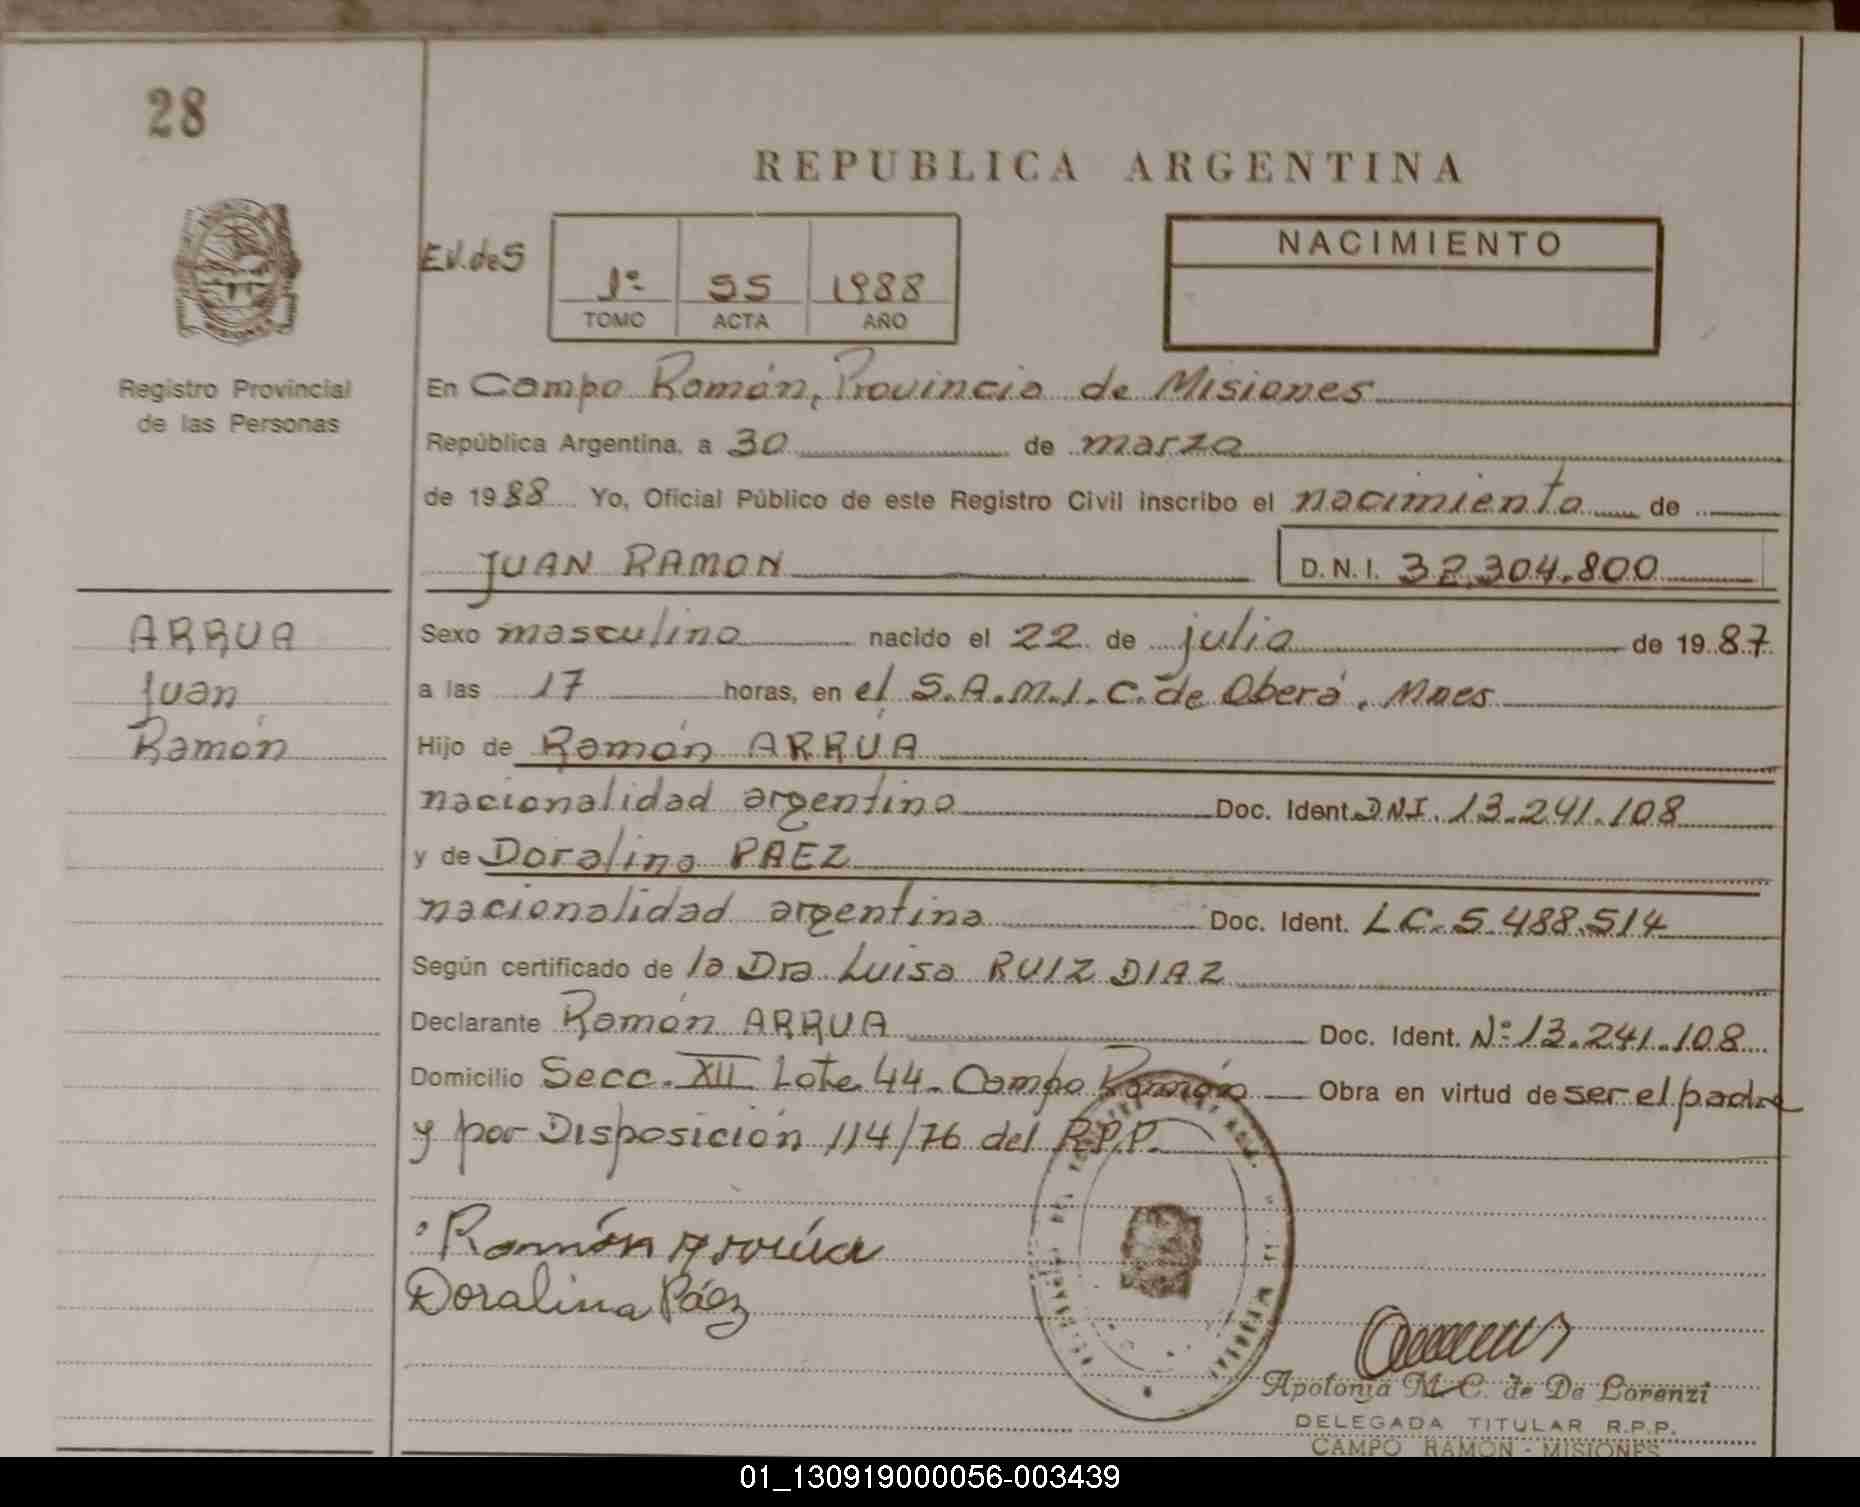 28
REPUBLICA ARGENTINA
E.V. de S
1º 55 1988
TOMO ACTA AÑO
NACIMIENTO
Registro Provincial
de las Personas
En Campo Ramón, Provincia de Misiones
República Argentina, a 30 de marzo
de 1988 Yo, Oficial Público de este Registro Civil inscribo el nacimiento de
JUAN RAMON D.N.I. 32.304.800
ARRUA
Juan
Ramón
Sexo masculino nacido el 22 de julio de 1987
a las 17 horas, en el S.A.M.I.C. de Oberá. Mnes
Hijo de Ramón ARRUA
nacionalidad argentino Doc. Ident. DNI. 13.241.108
y de Doralina PAEZ
nacionalidad argentina Doc. Ident. LC. 5.488.514
Según certificado de la Dra Luisa RUIZ DIAZ
Declarante Ramón ARRUA Doc. Ident. Nº 13.241.108
Domicilio Secc. XII Lote 44. Campo Ramón Obra en virtud de ser el padre
y por Disposición 114/76 del R.P.P.
Ramón Arrúa
Doralina Páez
Apolonia M. C. de De Lorenzi
DELEGADA TITULAR R.P.P.
CAMPO RAMON - MISIONES
01_130919000056-003439